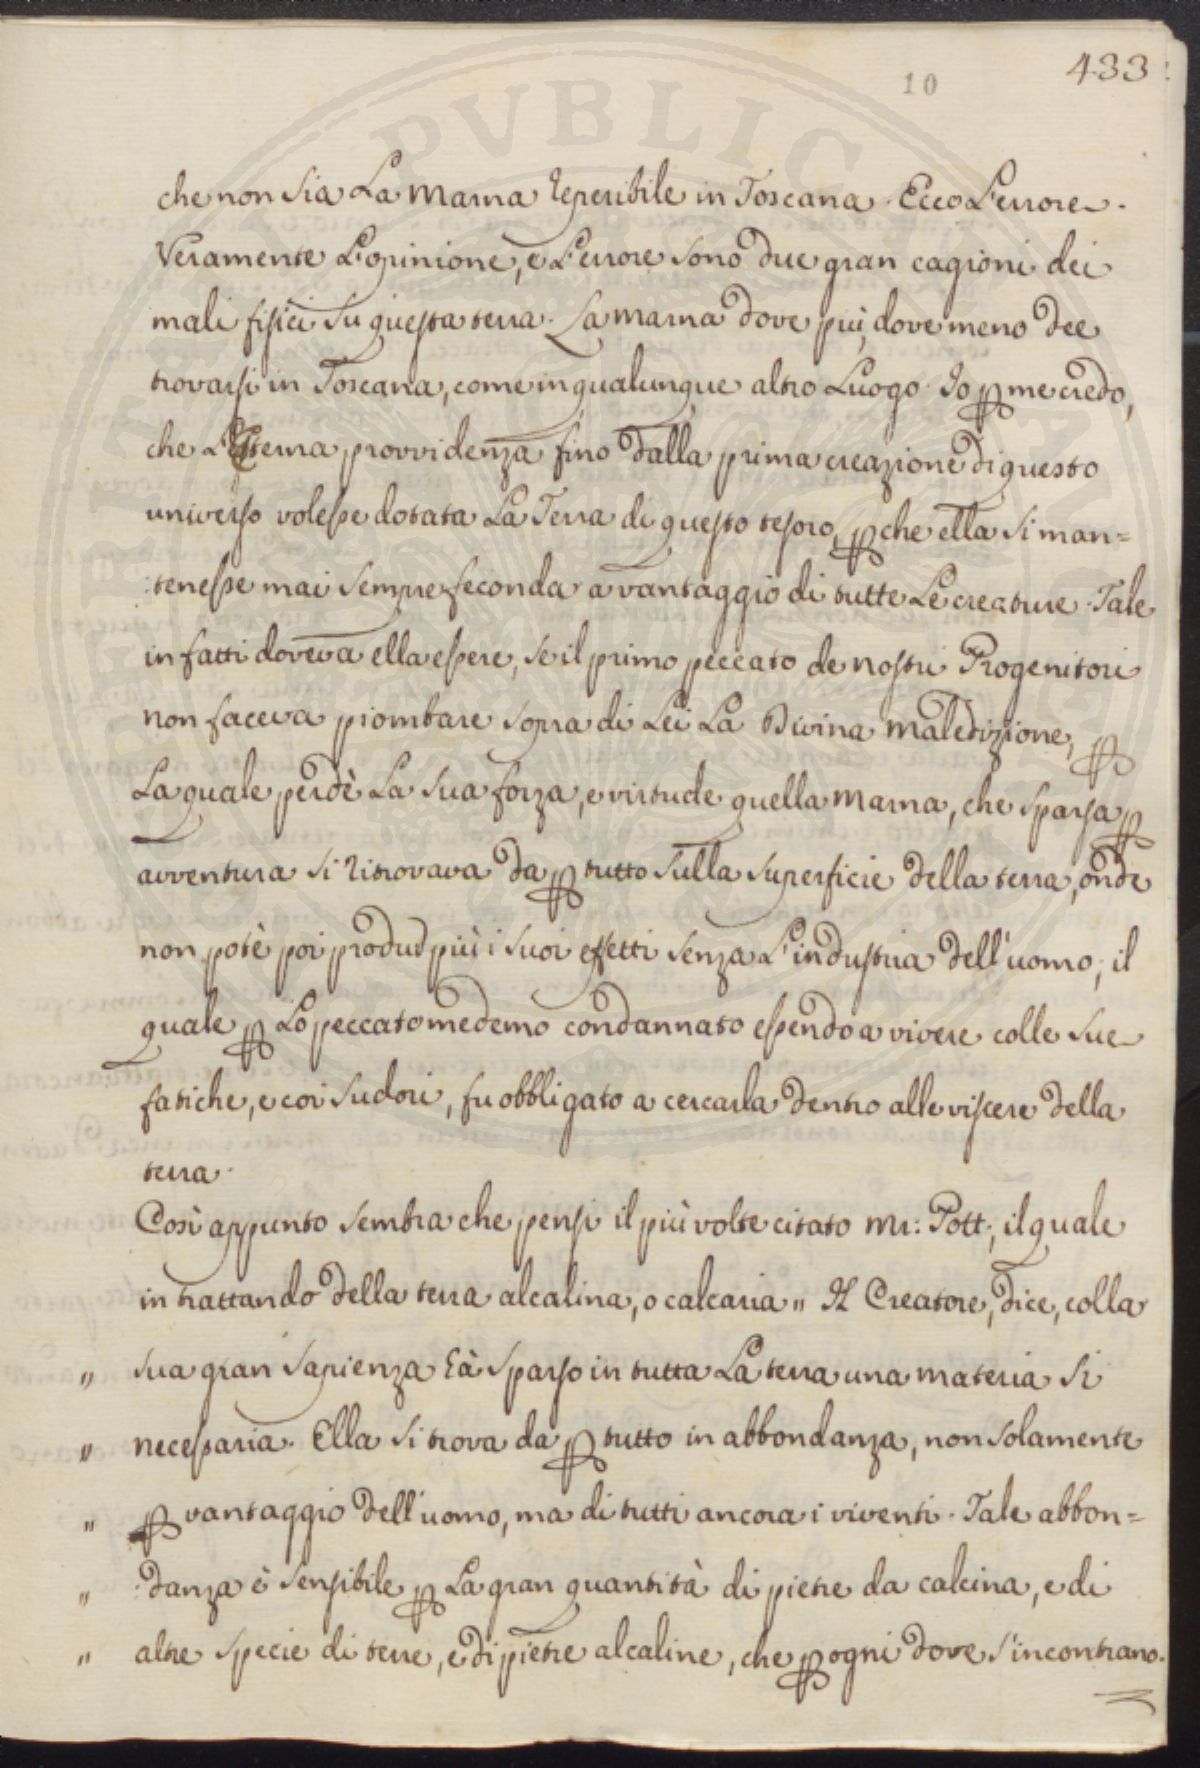 433
10
che non sia La Marna reperibile in Toscana. Ecco L'errore.
Veramente L'opinione, e L'errore sono due gran cagioni dei
mali fisici su questa terra. La marna dove più, dove meno dee
trovarsi in Toscana, come in qualunque altro Luogo. Io ꝑ me credo,
che L'Eterna provvidenza fino dalla prima creazione di questo
universo volesse dotata La Terra di questo tesoro, ꝑche ella si man=
tenesse mai sempre feconda a vantaggio di tutte Le creature. Tale
in fatti doveva ella essere, se il primo peccato de nostri Progenitori
non faceva piombare sopra di Lei La Divina maledizione, ꝑ
La quale perdè La sua forza, e virtude quella Marna, che sparsa ꝑ
avventura si ritrovava da ꝑ tutto sulla superficie della terra, onde
non potè poi produr più i suoi effetti senza L'industria dell'uomo; il
quale ꝑ Lo peccato medemo condannato essendo a vivere colle sue
fatiche, e coi sudori, fu obbligato a cercarla dentro alle viscere della
terra.
Così appunto sembra che pensi il più volte citato Mr: Pott; il quale
in trattando della terra alcalina, o calcaria „ Il Creatore, dice, colla
„ sua gran sapienza hà sparso in tutta La terra una materia sì
„ necessaria. Ella si trova da ꝑ tutto in abbondanza, non solamente
„ ꝑ vantaggio dell'uomo, ma di tutti ancora i viventi. Tale abbon=
„ danza è sensibile ꝑ La gran quantità di pietre da calcina, e di
„ altre specie di terre, e di pietre alcaline, che ꝑ ogni dove s'incontrano.
PVBLIC